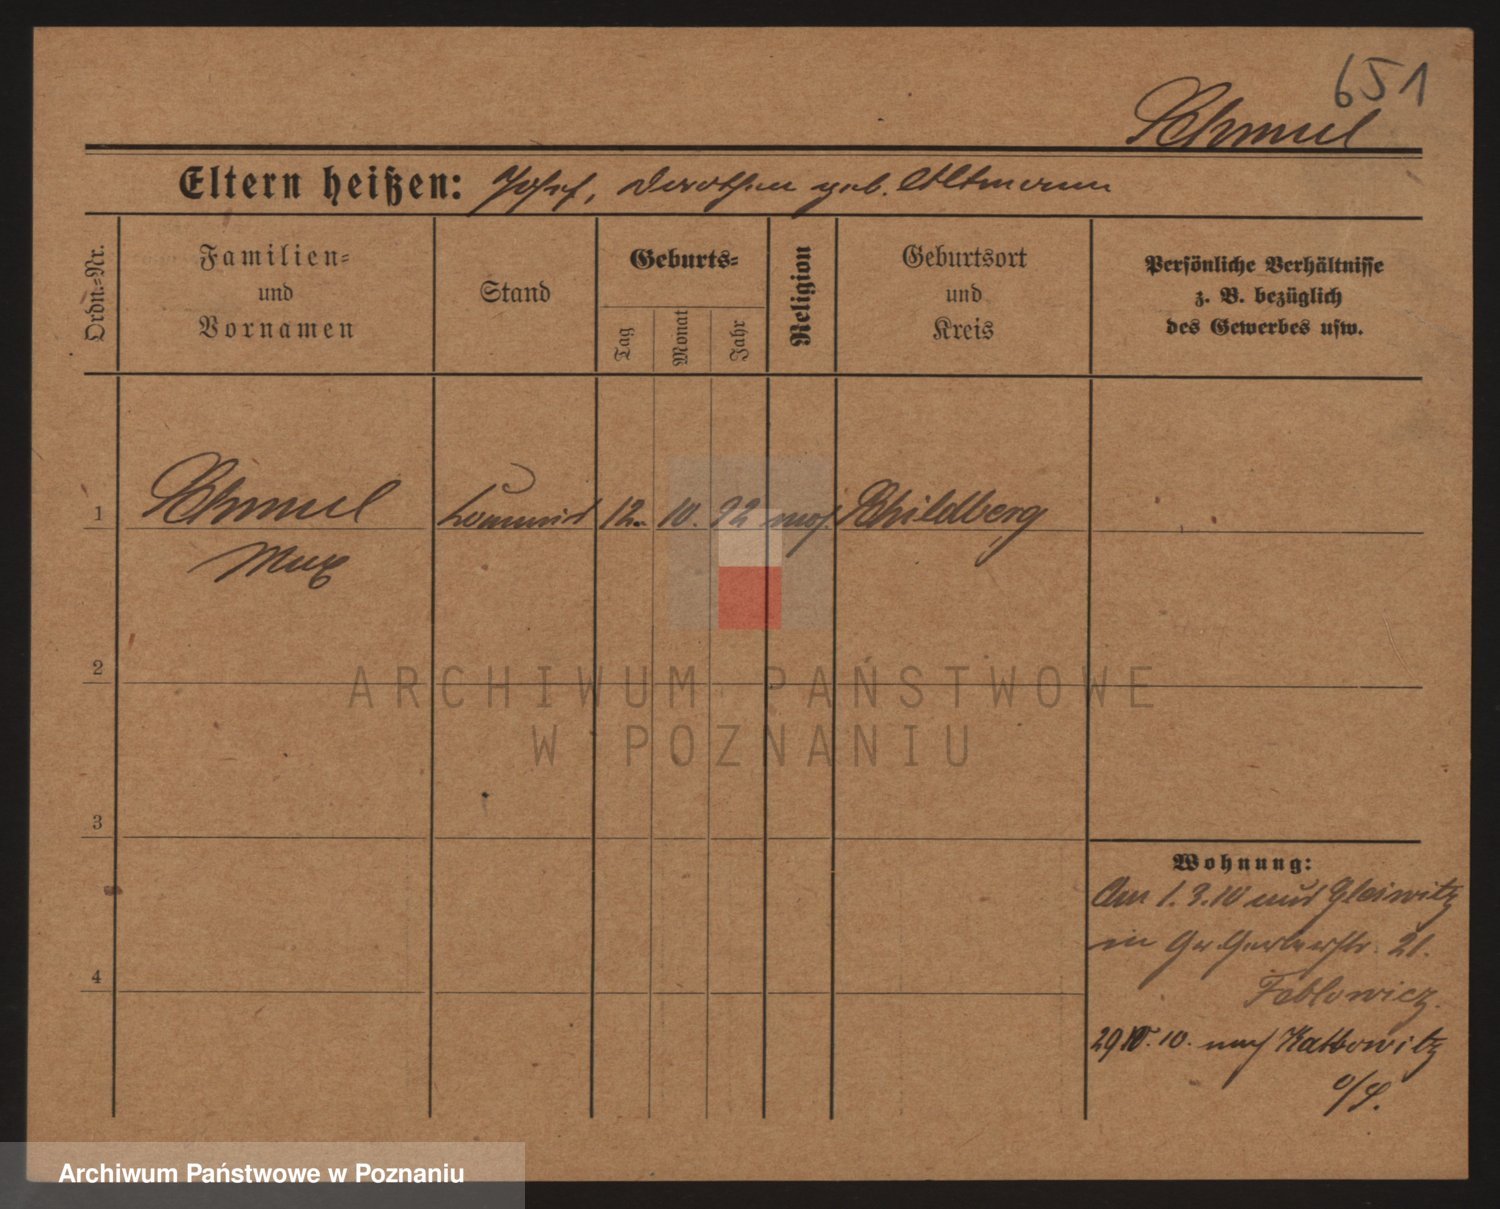 651
Schmul
Eltern heißen: Josef, Dorothea geb. Altmann
Ordn.=Nr.
Familien=
und
Vornamen
Stand
Geburts=
Tag
Monat
Jahr
Religion
Geburtsort
und
Kreis
Persönliche Verhältnisse
z. B. bezüglich
des Gewerbes usw.
1 Schmul Kommis 12. 10. 92 mos. Schildberg
Max
2
3
4
Wohnung:
Am 1.3.10 aus Gleiwitz
in Gr. Gerberstr. 21.
29. 10. nach Kattowitz
o/S.
ARCHIWUM PAŃSTWOWE
W POZNANIU
Archiwum Państwowe w Poznaniu